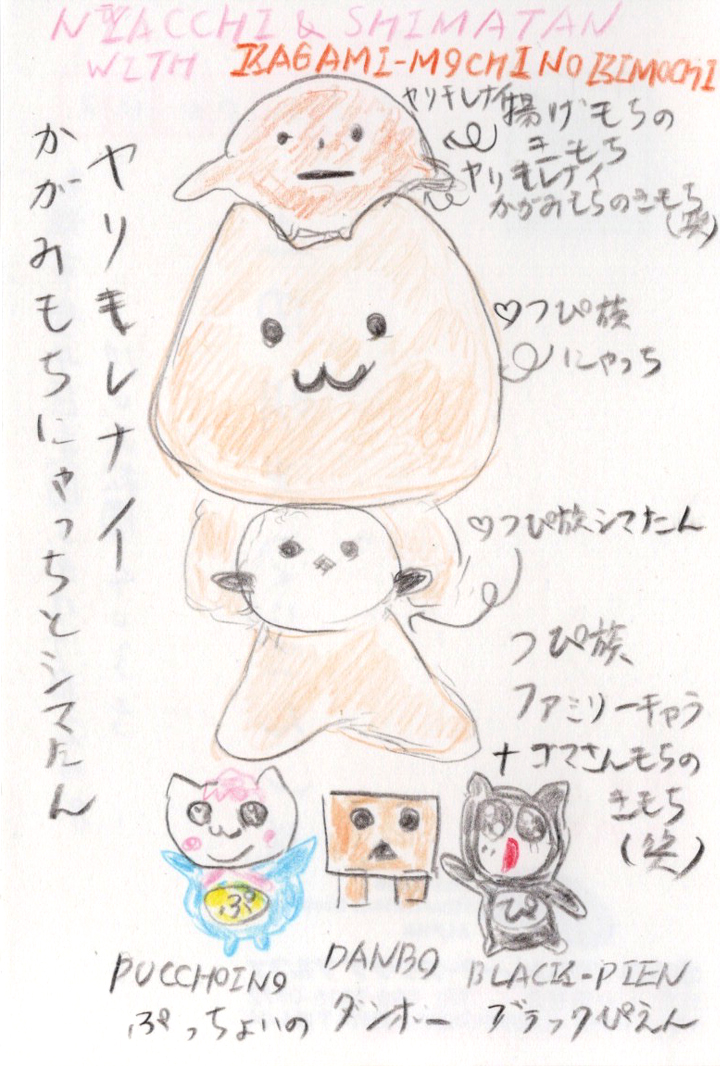 NYACCHI & SHIMATAN
WITH KAGAMI-MOCHI NO KIMOCHI
ヤリキレナイ揚げもちの
きもち
ヤリキレナイ
かがみもちのきもち
(笑)
ヤリキレナイ
かがみもちにゃっちとシマたん
♡つぴ族
にゃっち
♡つぴ族シマたん
つぴ族
ファミリーキャラ
+コマさんもちの
きもち
(笑)
ぷ
ぴ
PUCCHOINO
DANBO
BLACK-PIEN
ぷっちょいの
ダンボー
ブラックぴえん